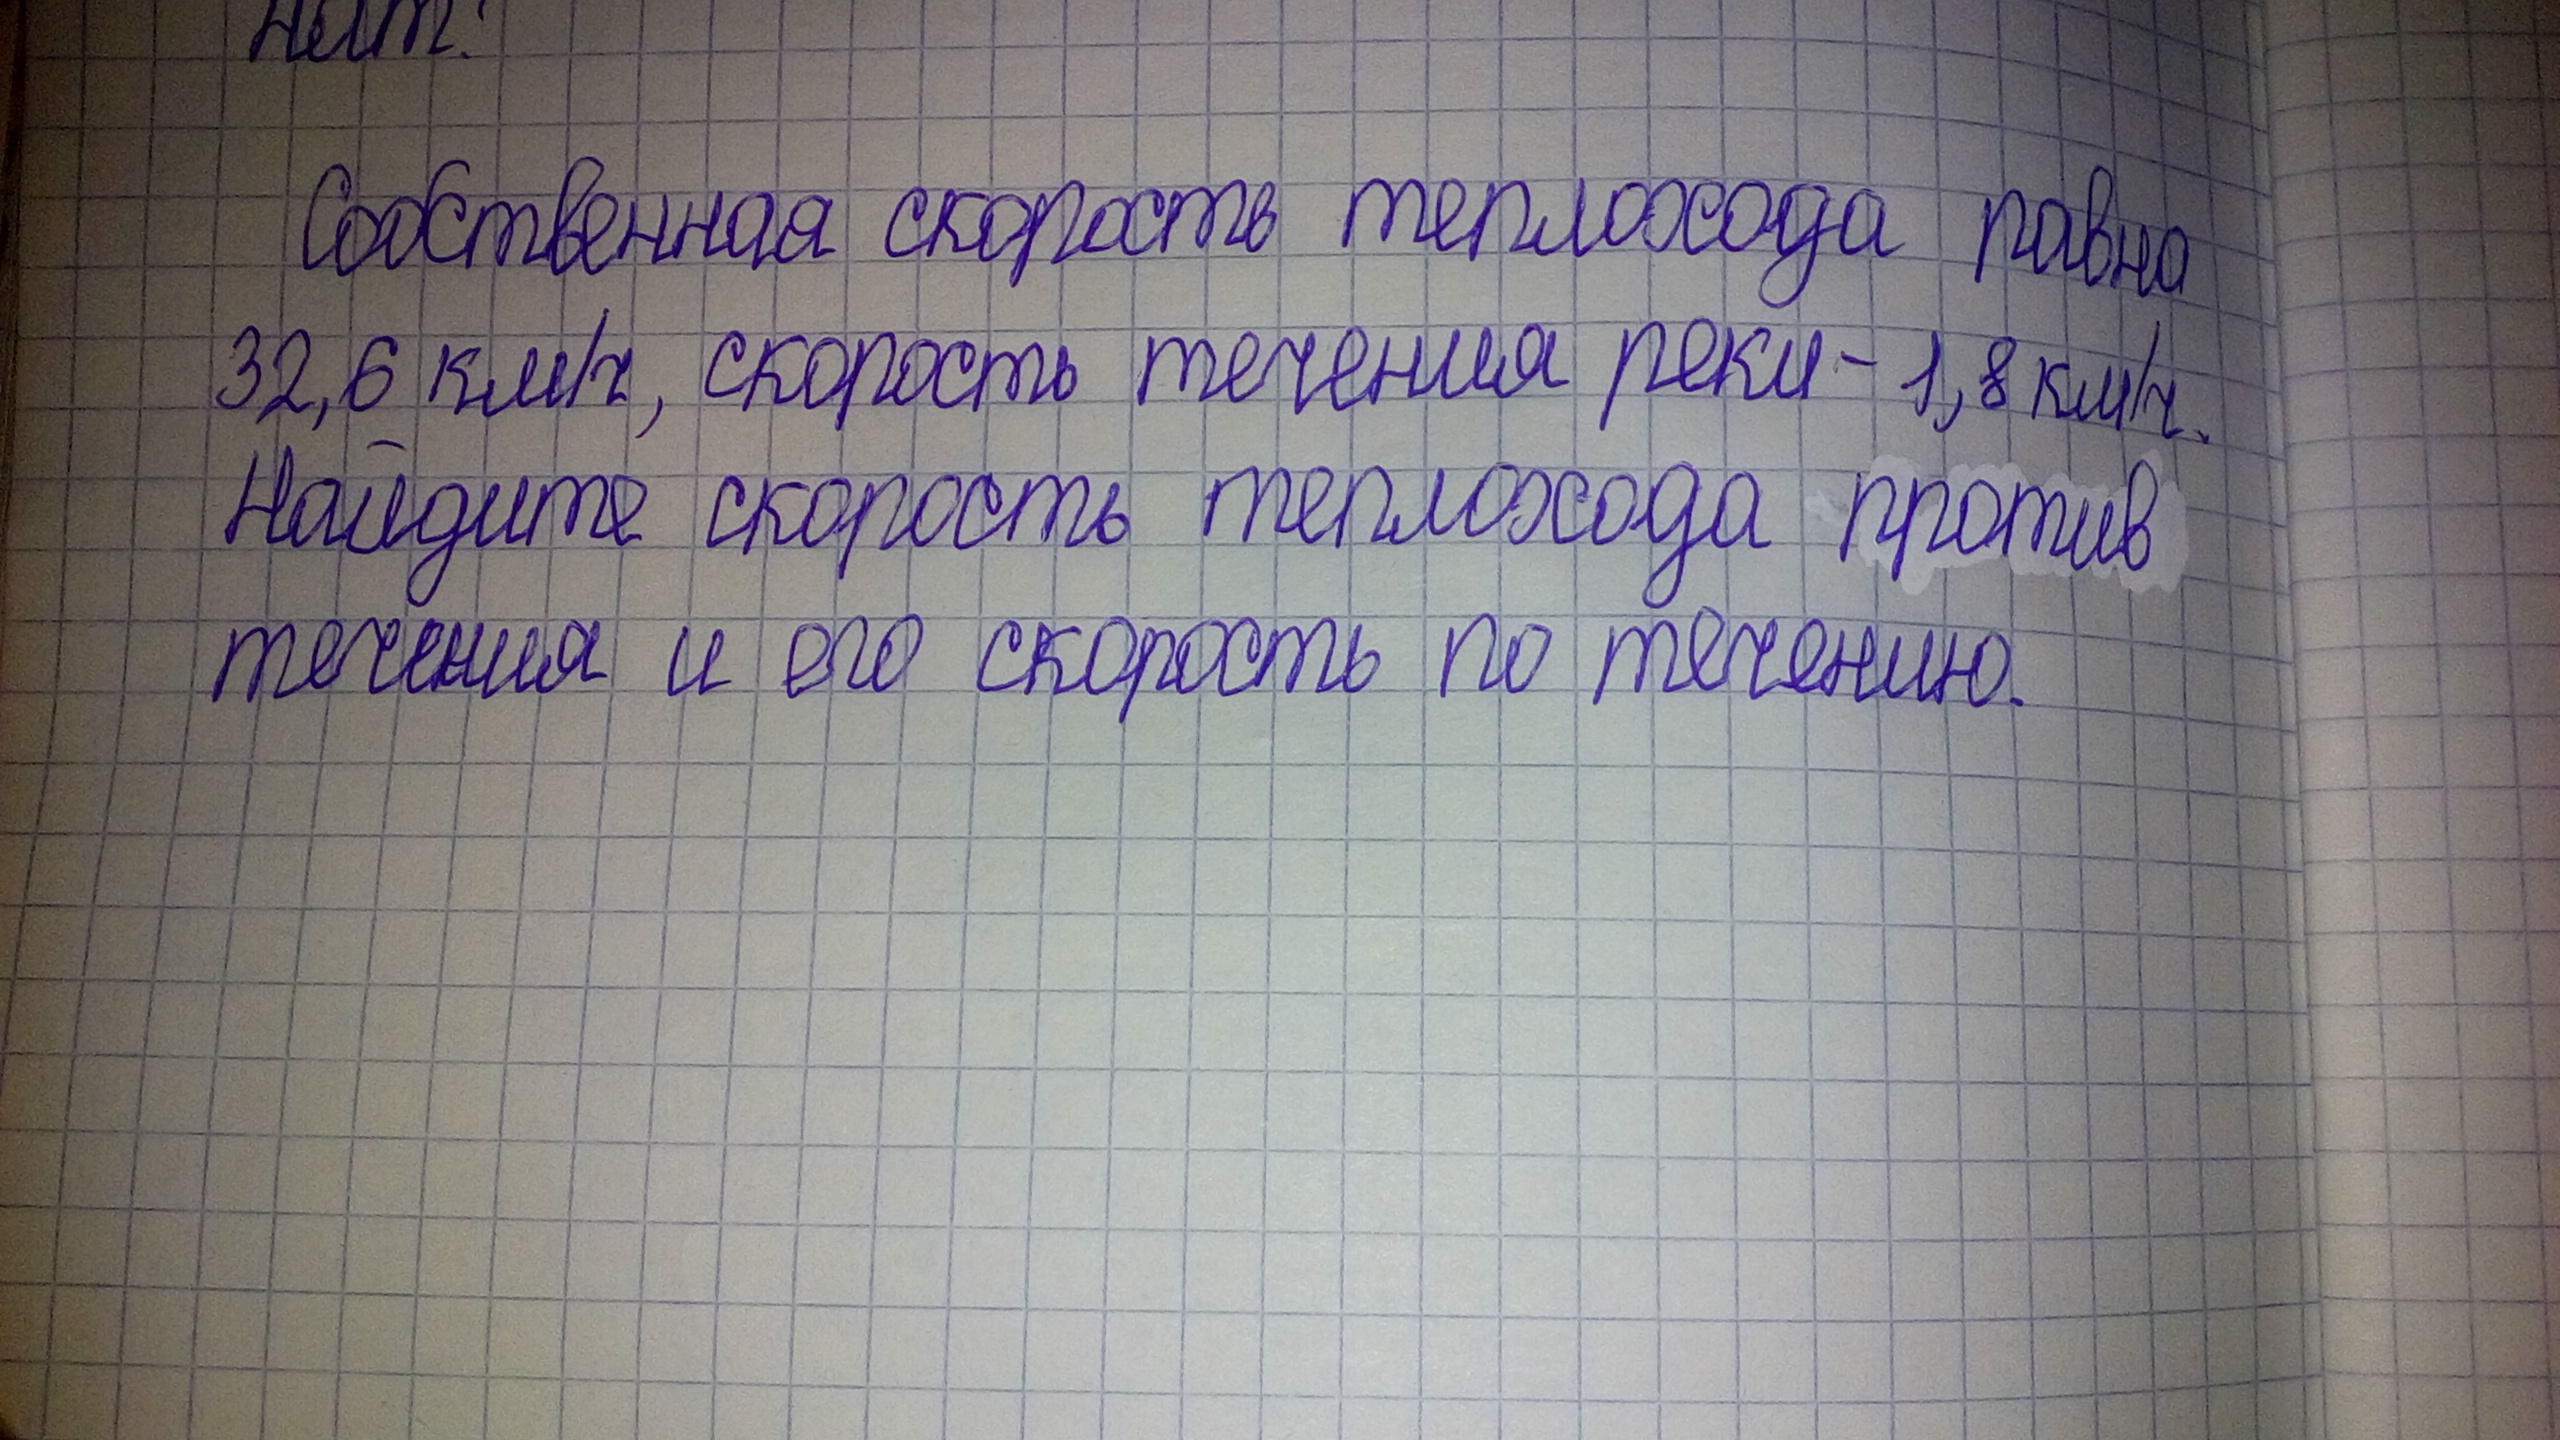 Собственная скорость теплохода равна
32,6 км/ч, скорость течения реки - 1,8 км/ч.
Найдите скорость теплохода против
течения и его скорость по течению.